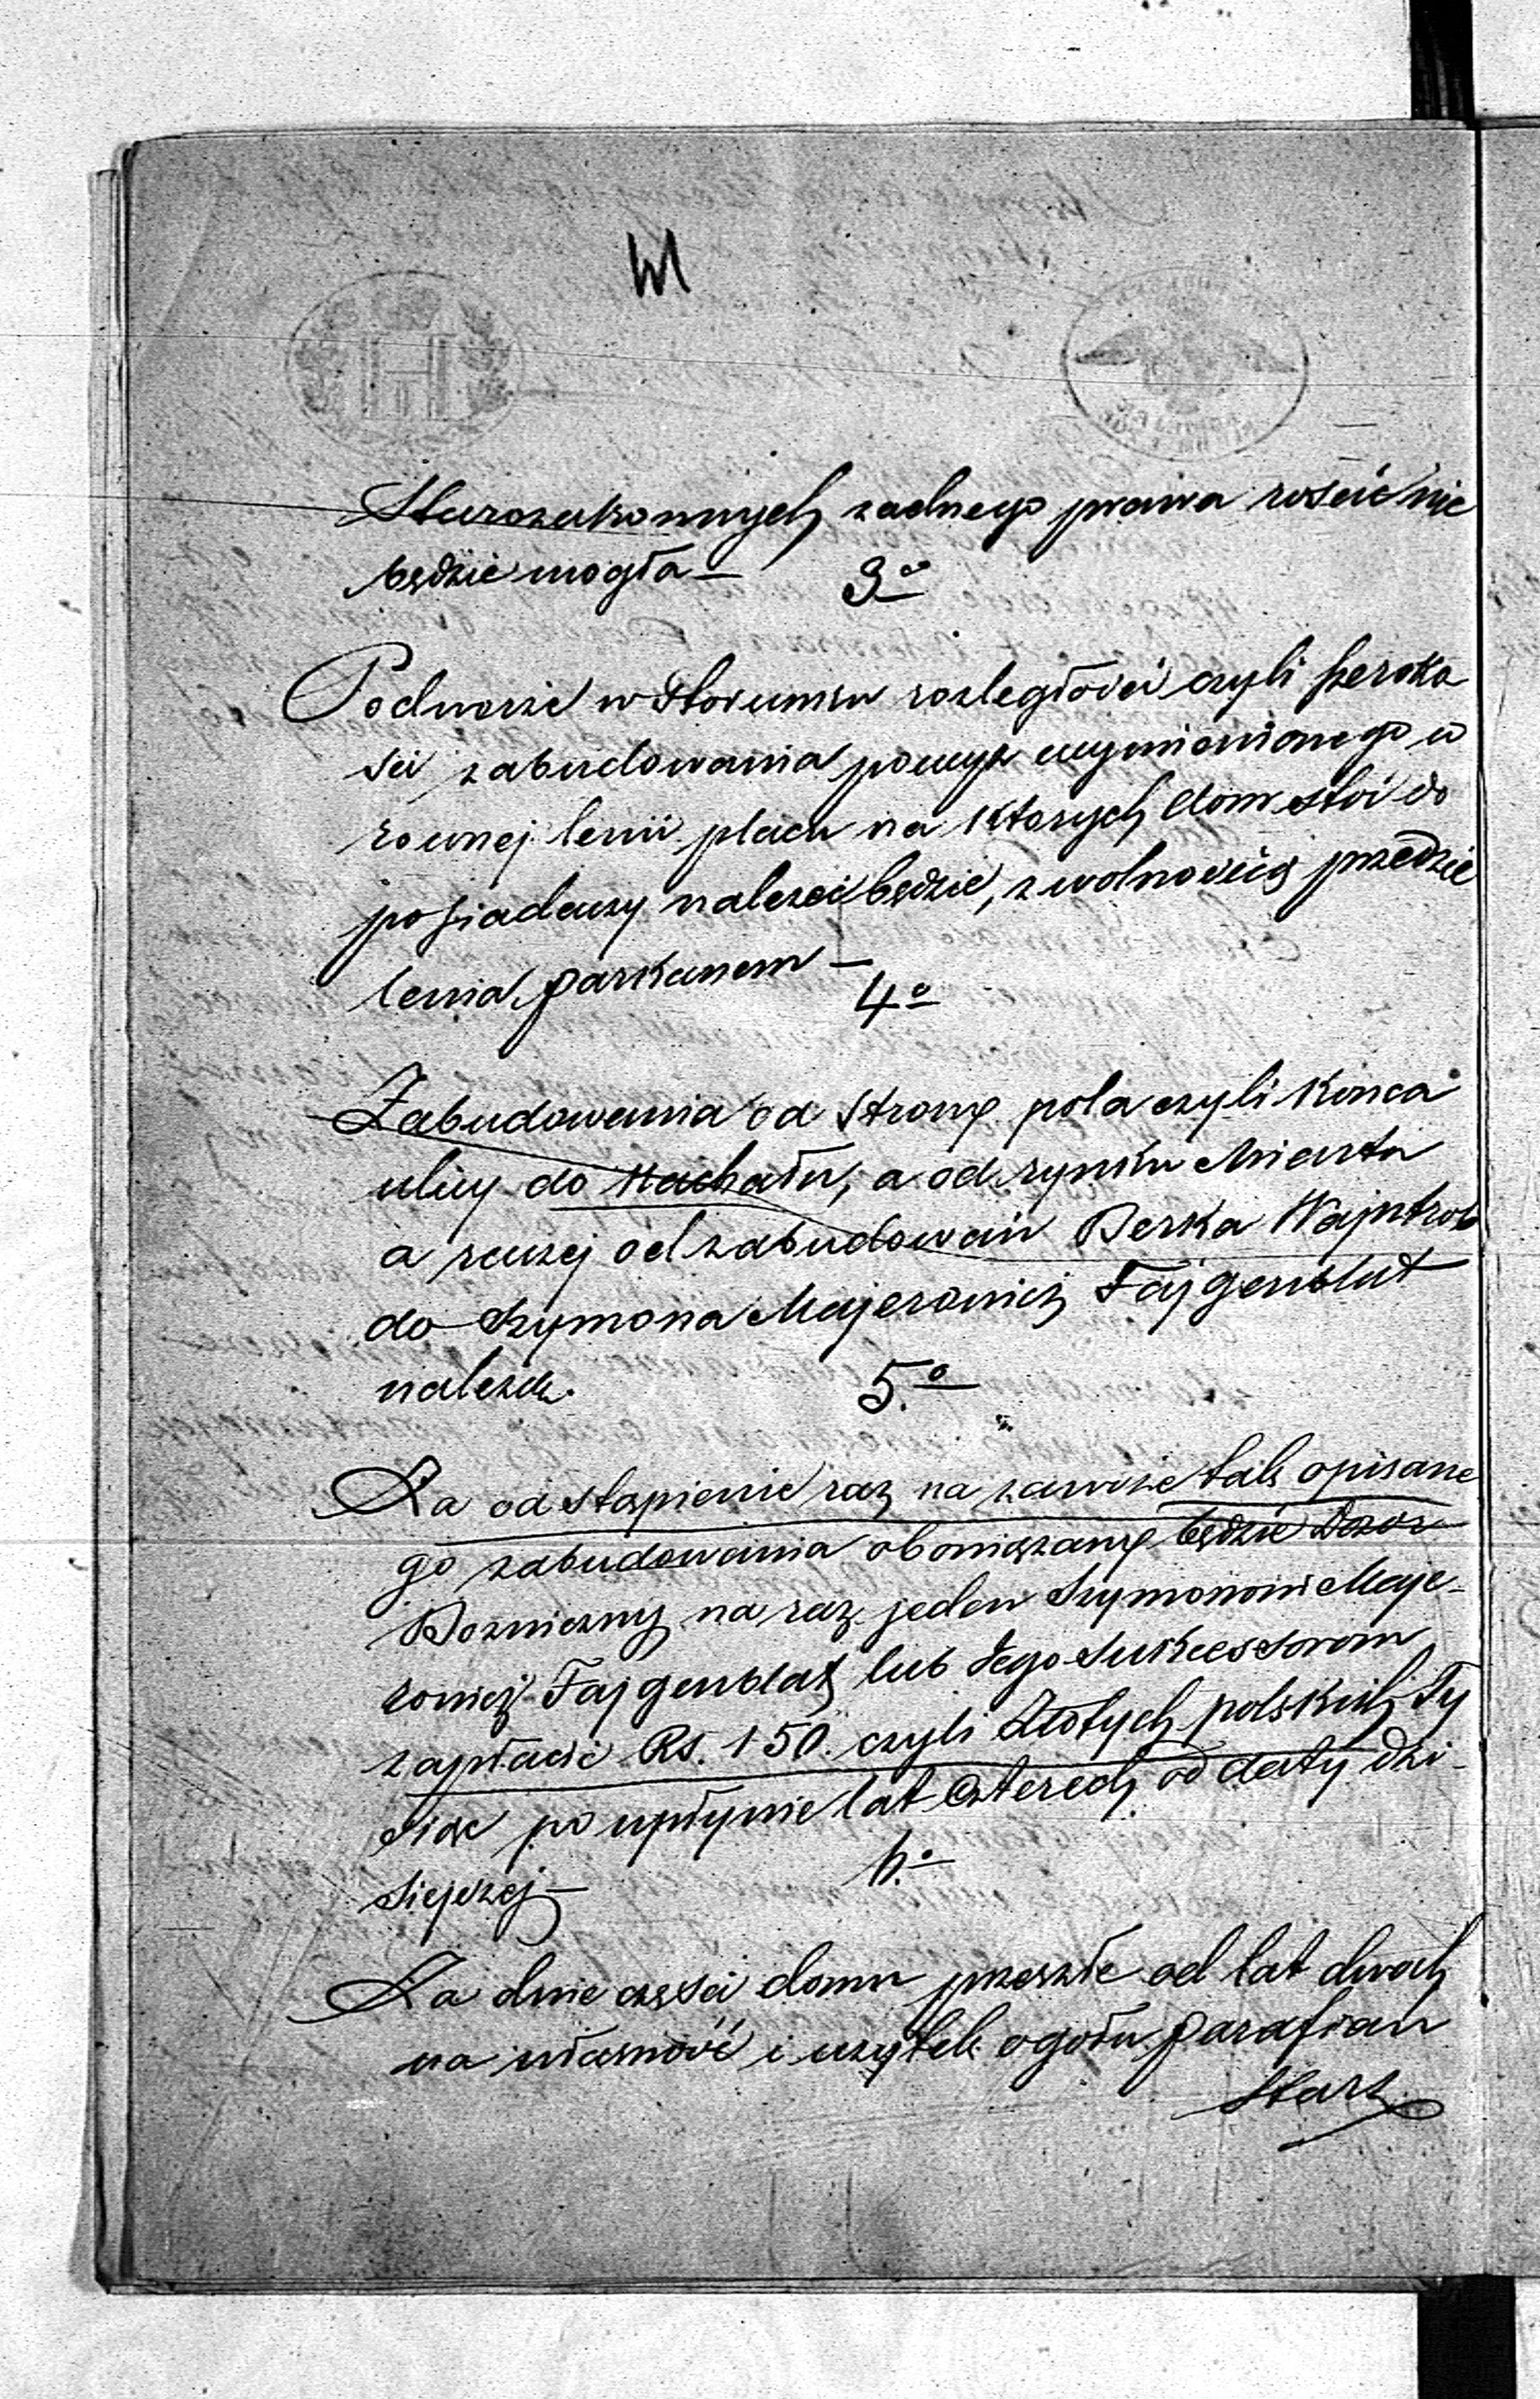 Starozakonnych zadnego prawa rościć nie
będzie mogła —
3o
Podworze w Stosunku rozległości czyli szeroko
sci zabudowania powyz wymienionego w
rownej lenii placu na ktorych dom stoi do
posiadaczy nalezeć będzie, z wolnością przedzie
lenia parkanem —
4o
Zabudowania od Strony pola czyli Konca
ulicy do Kachału, a od rynku Miasta
a raczej od zabudowań Berka Wajntrob
do Szymona Majerowicz Fajgenblat
należą.
5.o
Za odstąpienie raz na zawsze tak opisane
go zabudowania obowiązany będzie Dozor
Bozniczny na raz jeden Szymonowi Maje-
rowicz Fajgenblat lub Jego Sukcessorom
zapłacić Rs. 150. czyli Złotych polskich Ty
siąc po upłynie lat Czterech od daty dzi-
siejszej —
6.o
Za dwie części domu przeszłe od lat dwoch
na własność i uzytek ogołu parafian
Starz